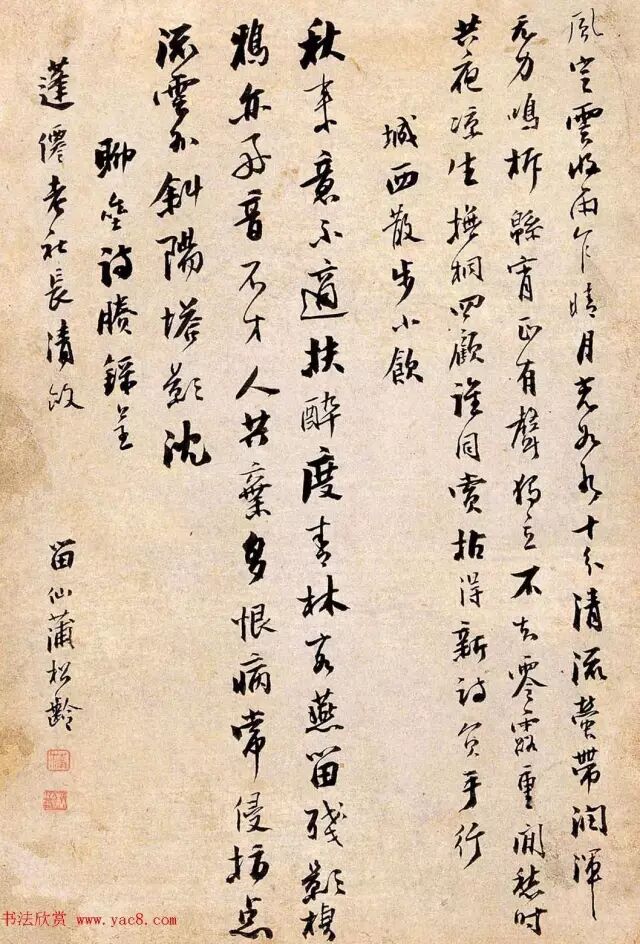 風定雲收雨乍晴月光如水十分清流螢帶潤渾
无力鳴柝緜宵正有聲獨立不知零露重閒愁時
共夜凉生撫桐四顧誰同賞拈得新詩負手行
城西散步小飲
秋来意不適扶醉度青林客燕留殘影棲
鴉亦好音不才人共棄多恨病常侵指点
流雲外斜陽塔影沈
聊齋詩賸錄呈
蓬僊老社長清政
留仙蒲松齡
书法欣赏 www.yac8.com